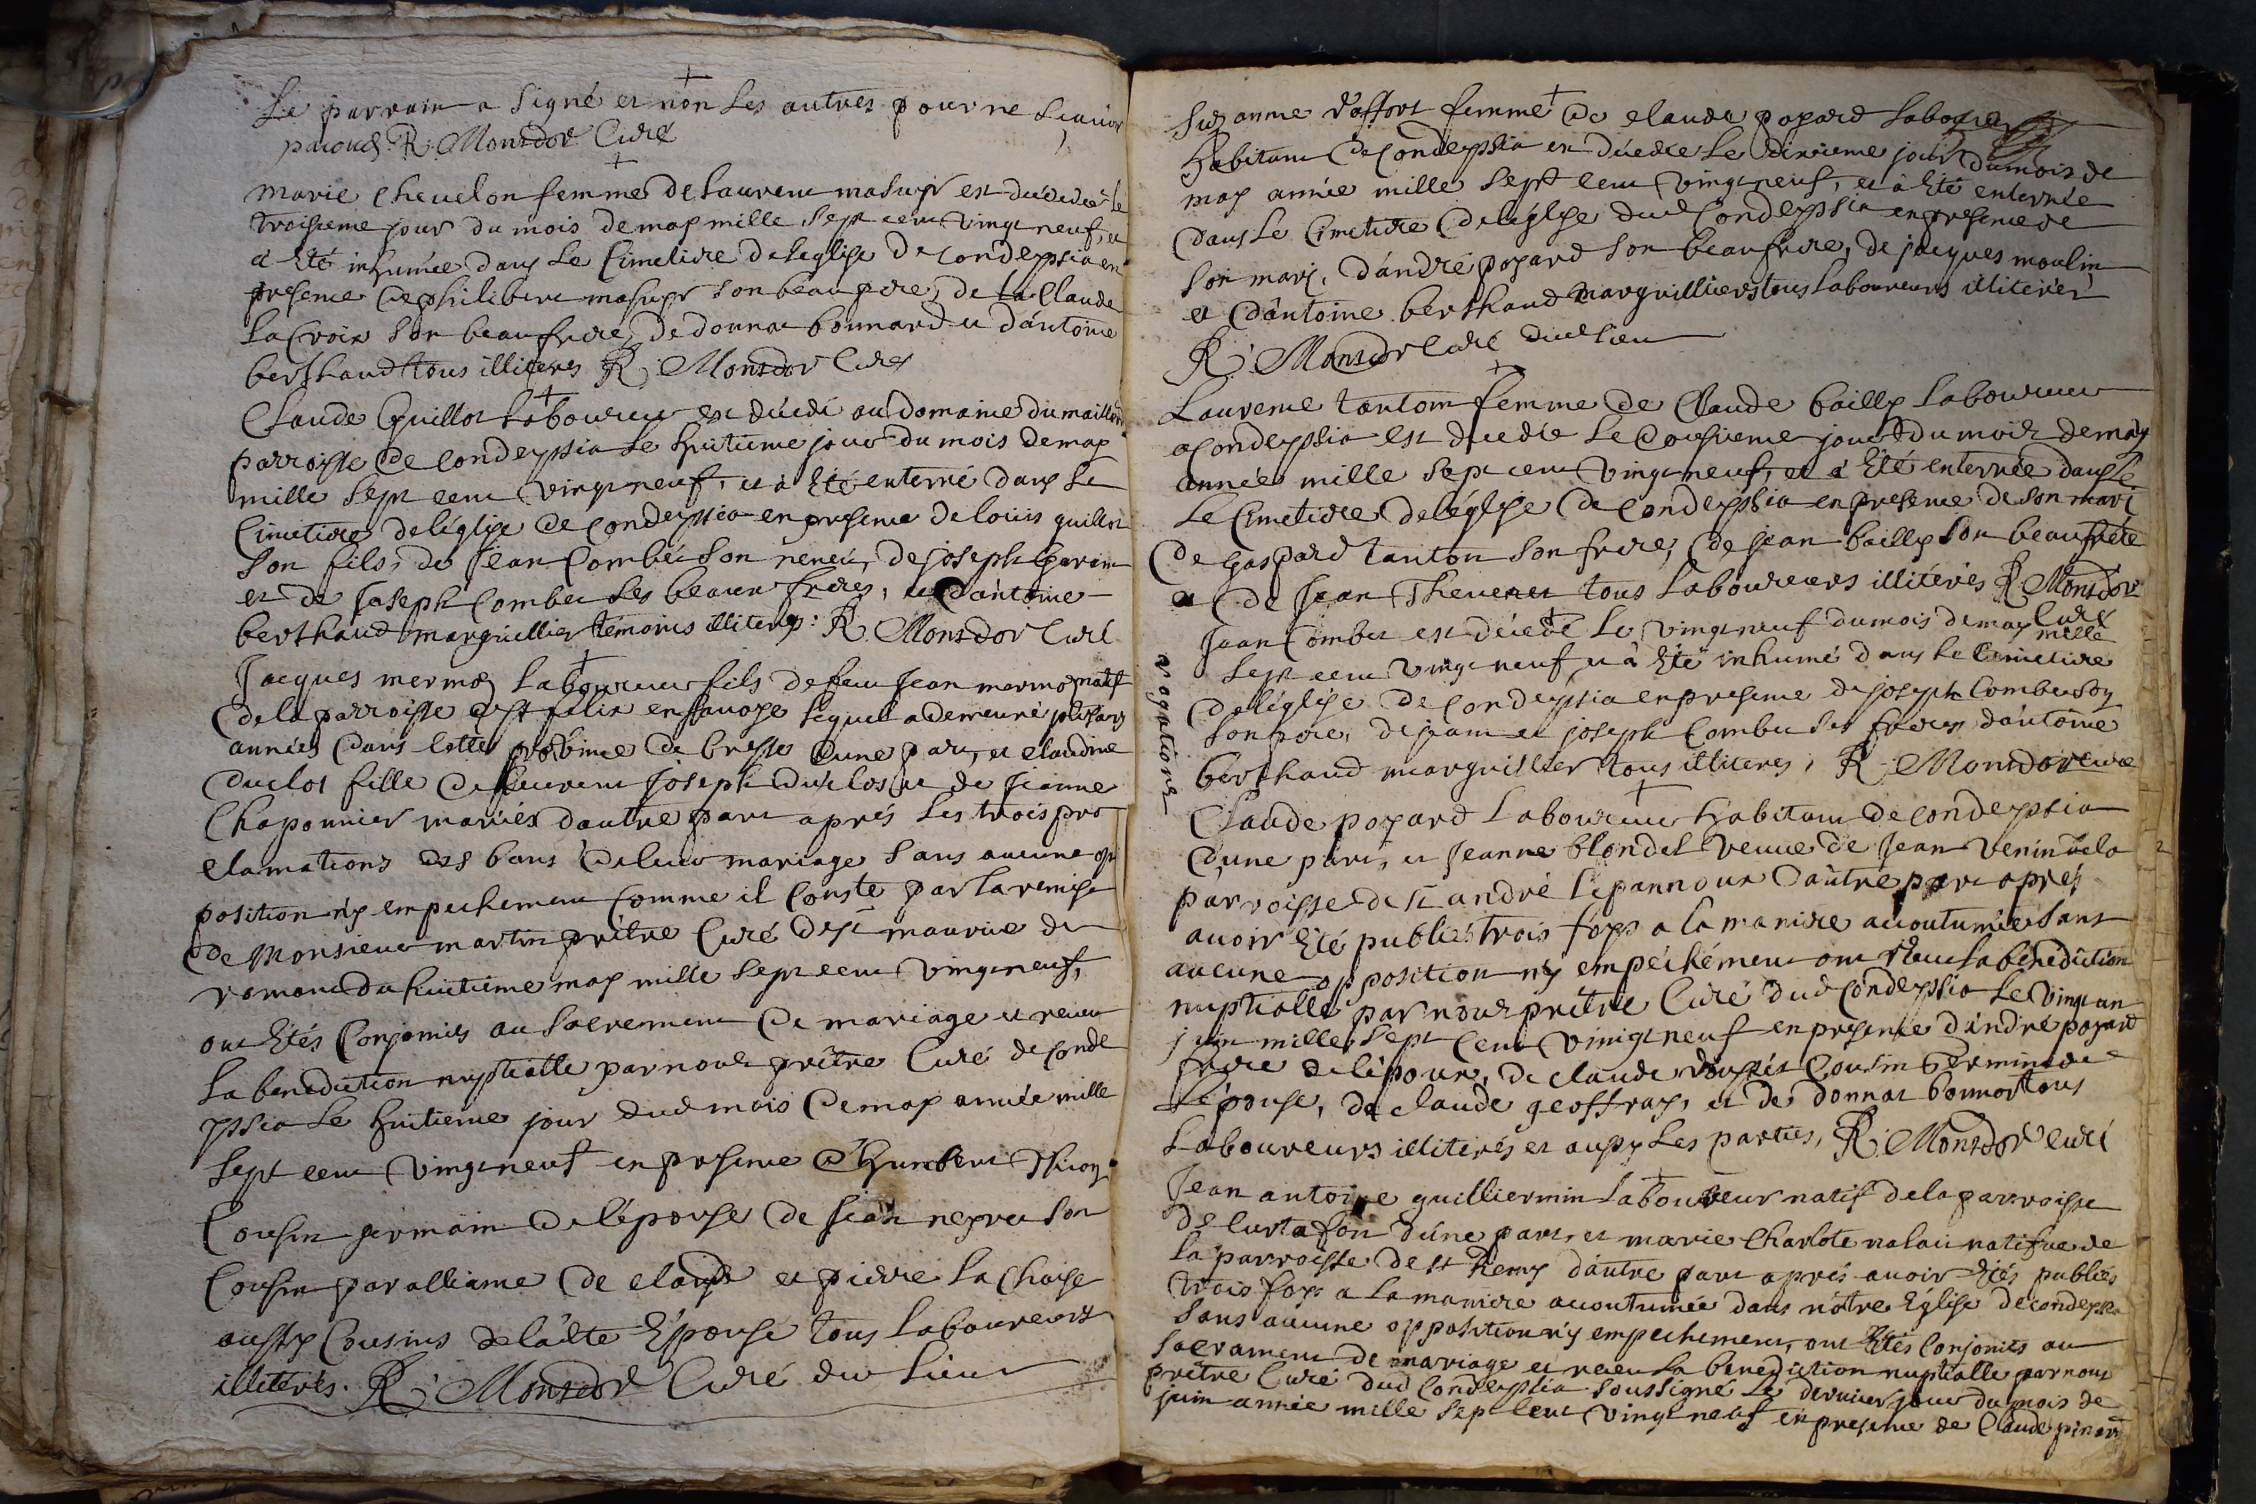 Le parrain a signé et non les autres pour ne scavoir
R. Monsdor Curé
marie Chevelon femme de laurent masuyr est décédée le
troisieme jour du mois de may mille sept cent vingt neuf, et
a été inhumée dans le Cimetiere de leglise de condeyssia en
presence de philibert masuyr son beau pere, de Claude
laCroix son beaufrere, de donnat bonnard et d'antoine
berthaud tous illiteres R. Monsdor Curé
Claude Guillot laboureur est décédé au domaine du maillard
parroisse de Condeyssia le huitieme jour du mois de may
mille sept cent vingt neuf, et a été enterré dans le
Cimetiere de léglise de Condeyssia en presence de loüis guillot
son fils, de Jean Combet son neveu, de joseph Garain
et de joseph Combet ses beaux freres, et d'antoine
berthaud marguillier témoins illiteres: R. Monsdor Curé
Jacques mermoz laboureur fils de feu Jean mermoz natif
de la parroisse de st felix en savoye lequel a demeuré plusieurs
années dans cette province de bresse d'une part, et claudine
duclos fille de Joseph duclos et de Jeanne
Chaponnier mariés dautre part aprés les trois pro
clamations des bans de leur mariage sans aucune op
position n'y empechement Comme il Conste par la remise
de Monsieur martin prêtre Curé de st maurice de
romont du huitieme may mille sept cent vingt neuf,
ont étés Conjoints au sacrement de mariage et receu
la benediction nuptialle par nous prêtre Curé de Conde
yssia le huitieme jour dud mois de may année mille
sept cent vingt neuf en presence d'humbert
Cousin germain de lépouse de Jean neyret son
Cousin par alliance de claude et pierre la Chaise
aussy Cousins de la dte Epouse tous laboureurs
illiterés. R. Monsdor Curé du lieu
Suzanne d'affort femme de claude poyard laboureur
habitant de Condeyssia est décédée le dixieme jour du mois de
may année mille sept cent vingt neuf, et à été enterrée
dans le Cimetiere de léglise dud Condeyssia en presence de
son mary, d'andré poyard son beaufrere, de jacques moulin
et d'antoine berthaud marguilliers tous laboureurs illiterés
R. Monsdor Curé dud lieu
Laurence tanton femme de Claude bailly laboureur
a condeyssia est décédée le dousieme jour du mois de may
année mille sept cent vingt neuf, et a été enterrée dans le
le Cimetiere de léglise de Condeyssia en presence de son mari
de Gaspard tanton son frere, de jean bailly son beaufrere
et de Jean Thevenet tous laboureurs illitérés R. Monsdor
Curé
Jean Combet est décédé le vingt neuf du mois de may mille
sept cent vingt neuf, et à été inhumé dans le Cimetiere
de léglise de Condeyssia en presence de joseph Combet son
son pere, de jean et joseph Combet ses freres d'antoine
berthaud marguillier tous illiteres, R. Monsdor curé
rogations
Claude poyard laboureur habitant de Condeyssia
d'une part, et Jeanne blondel veuve de Jean venin de la
parroisse de st andré le pannoux d'autre part aprés
avoir été publiés trois foys a la maniere accoutumée sans
aucune opposition n'y empéchément ont receu la bénédiction
nuptialle par nous prêtre Curé dud Condeyssia le vingt un
juin mille sept Cent vingt neuf en presence d'andré poyard
frere de lépoux, de claude Cousin Germain de
lépouse, de claude geoffray, et de donnat bonnor tous
laboureurs illiterés et aussy les parties, R. Monsdor curé
Jean antoine guilliermin laboureur natif de la parroisse
de Curtafon d'une part, et marie Charlote nalai natifve de
la parroisse de st Remy d'autre part aprés avoir étés publiés
trois foys a la maniere accoutumée dans nôtre Église de condeyssia
sans aucune opposition n'y empechement, ont étés Conjoints au
sacrement de mariage et receu la benediction nuptialle par nous
prêtre Curé dud Condeyssia soussigné le dernier jour du mois de
juin année mille sept cent vingt neuf en presence de Claude pinard